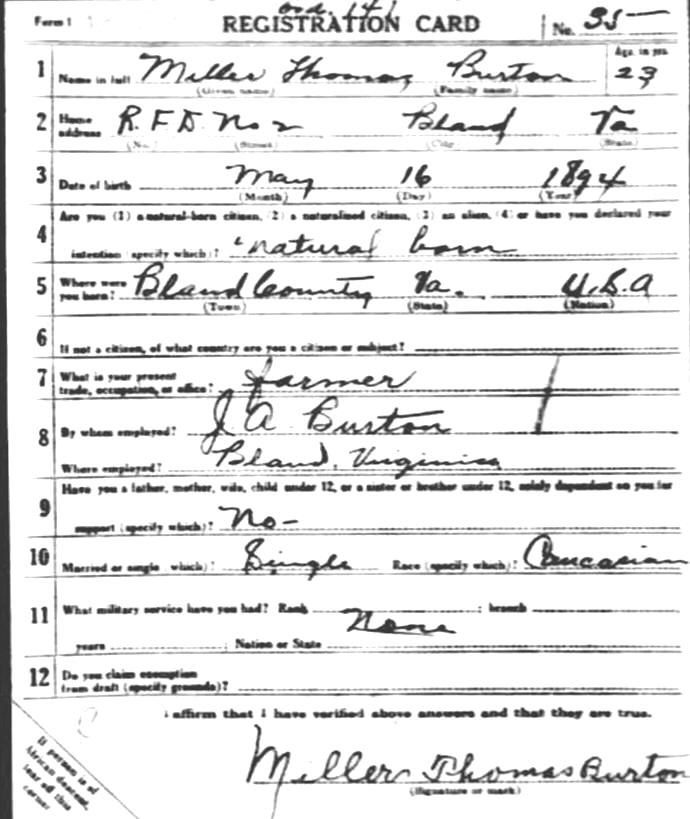 Ord. 141
Form 1 REGISTRATION CARD No. 35—
1 Name in full Miller Thomas Burton Age, in yrs. 23
(Given name) (Family name)
2 Home address R.F.D. No 2 Bland Va
(No.) (Street) (City) (State)
3 Date of birth May 16 1894
(Month) (Day) (Year)
4 Are you (1) a natural-born citizen, (2) a naturalized citizen, (3) an alien, (4) or have you declared your
intention (specify which)? natural born
5 Where were you born? Bland County Va. U.S.A
(Town) (State) (Nation)
6 If not a citizen, of what country are you a citizen or subject?
7 What is your present trade, occupation, or office? farmer
8 By whom employed? J A Burton
Where employed? Bland, Virginia
9 Have you a father, mother, wife, child under 12, or a sister or brother under 12, solely dependent on you for
support (specify which)? No-
10 Married or single (which)? Single Race (specify which)? Caucasian
11 What military service have you had? Rank ; branch
None
years ; Nation or State
12 Do you claim exemption
from draft (specify grounds)?
I affirm that I have verified above answers and that they are true.
Miller Thomas Burton
(Signature or mark)
If person is of
African descent,
tear off this
corner